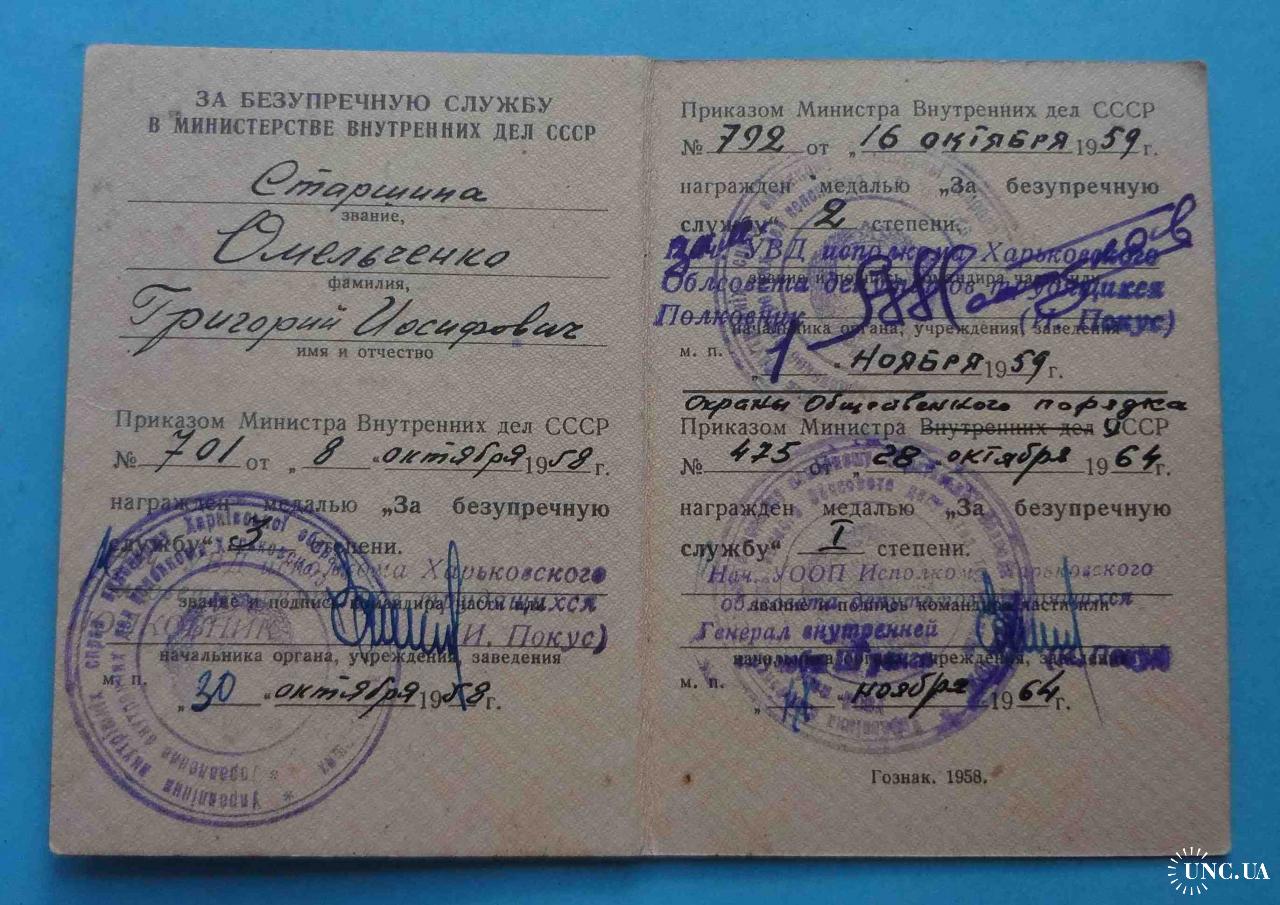 ЗА БЕЗУПРЕЧНУЮ СЛУЖБУ
В МИНИСТЕРСТВЕ ВНУТРЕННИХ ДЕЛ СССР
Старшина
звание,
Омельченко
фамилия,
Григорий Иосифович
имя и отчество
Приказом Министра Внутренних дел СССР
№ 701 от „ 8 “ октября 1958 г.
награжден медалью „За безупречную
службу“ 3 степени.
исполкома Харьковского
трудящихся
звание и подпись командира части или
(И. Покус)
начальника органа, учреждения, заведения
м. п.
„ 30 “ октября 1958 г.
Приказом Министра Внутренних дел СССР
№ 792 от „ 16 октября 1959 г.
награжден медалью „За безупречную
службу“ 2 степени.
зам. нач. УВД исполкома Харьковского
звание и подпись командира части или
Облсовета депутатов трудящихся
Полковник (И. Покус)
начальника органа, учреждения, заведения
м. п.
„ 1 “ НОЯБРЯ 1959 г.
Охраны Общественного порядка
Приказом Министра Внутренних дел УССР
№ 475 от „ 28 “ октября 1964 г.
награжден медалью „За безупречную
службу“ I степени.
Нач. УООП Исполкома Харьковского
облсовета депутатов трудящихся
звание и подпись командира части или
Генерал внутренней
начальника органа, учреждения, заведения
Покус
м. п.
ноября 1964 г.
Гознак. 1958.
UNC.UA